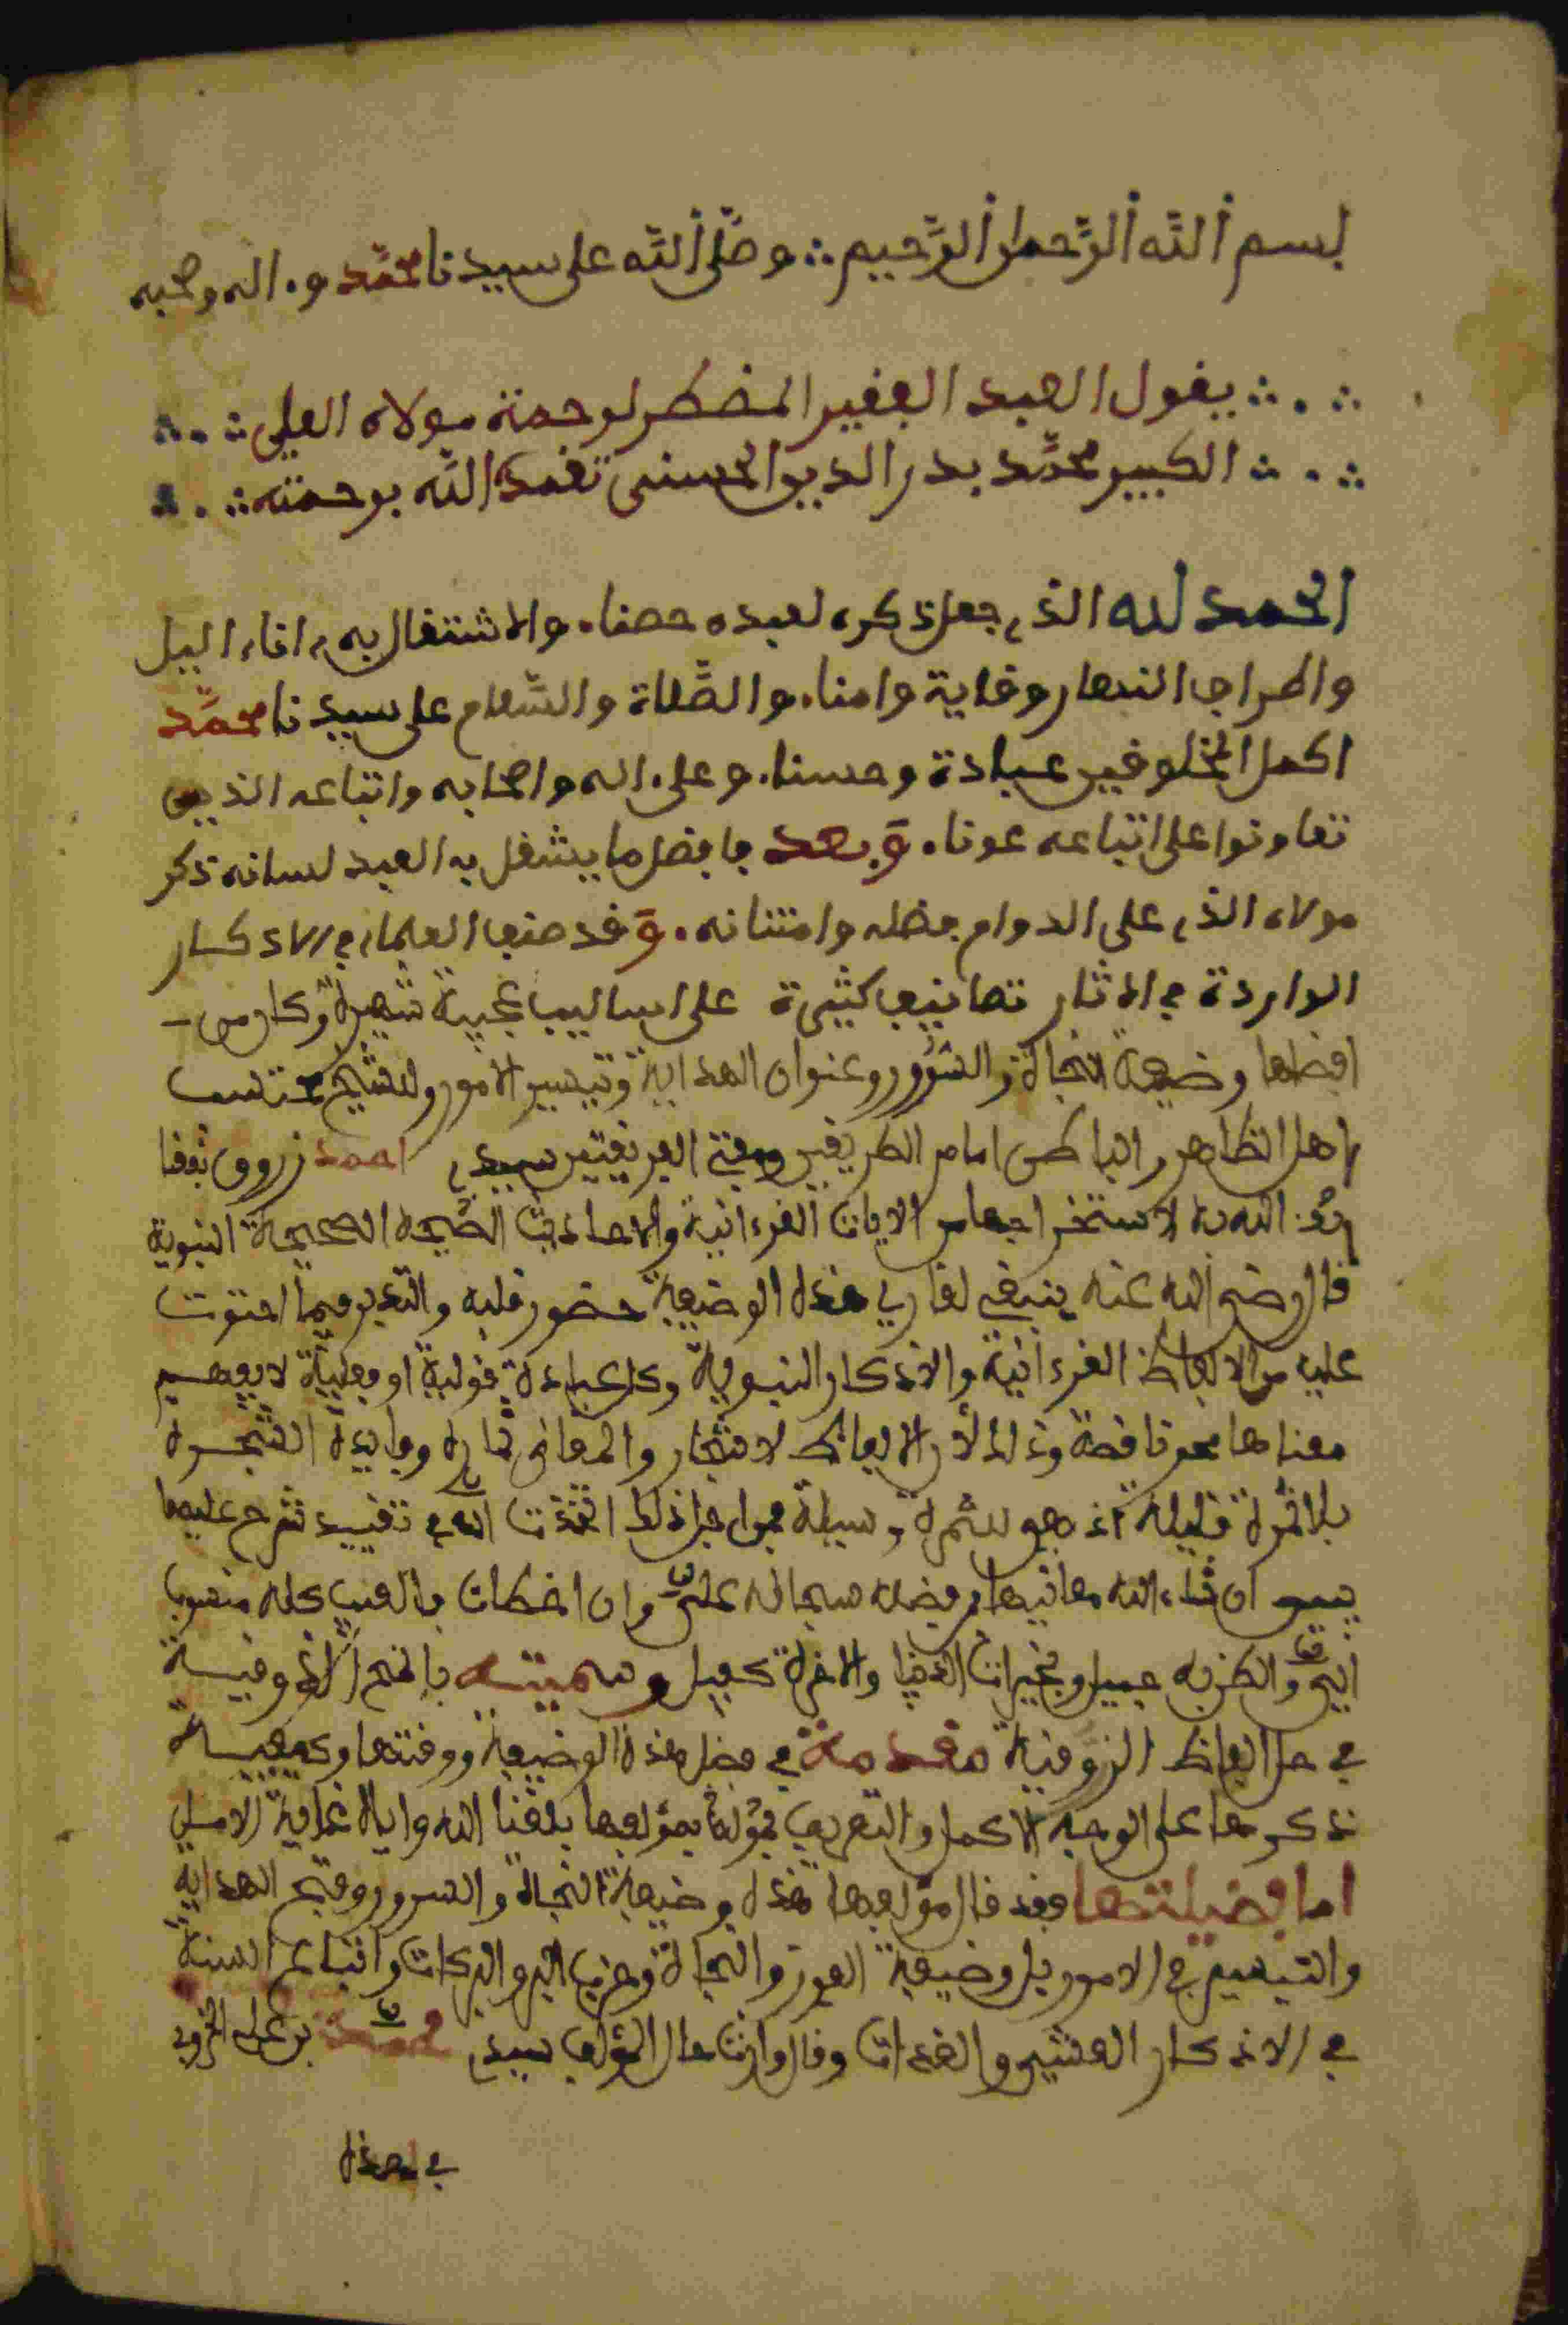 بسم الله الرحمان الرحيم وصلى الله على سيدنا محمد وءاله وصحبه
يقول العبد الفقير المضطر لرحمة مولاه العلي
الكبير محمد بدر الدين الحسنى تغمده الله برحمته
الحمد لله الذي جعل ذكره لعبده حصنا. والاشتغال به ءاناء اليل
واطراف النهار وقاية وامنا. والصلاة والسلام على سيدنا محمد
اكمل المخلوقين عبادة وحسنا. وعلى ءاله واصحابه واتباعه الذين
تعاونوا على اتباعه عونا. وبعد فافضل ما يشغل به العبد لسانه ذكر
مولاه الذي على الدوام فضله وامتنانه. وقد صنف العلماء في الاذكار
الواردة في الاثار تصانيف كثيرة على اساليب عجيبة شهيرة وكان من
افضلها وضيفة النجاة والسرور وعنوان الهداية وتيسير الامور للشيخ محتسب
اهل الظاهر والباطن امام الطريقين ومفتي الفريقين سيدي احمد زروق نفعنا
الله به لاستخراجها من الايات القرءانية والاحاديث الصحيحة النبوية
قال رضي الله عنه ينبغي لقاري هذه الوضيفة حضور قلبه والتدبر فيما احتوت
عليه من الالفاظ القرءانية والاذكار النبوية وكل عبادة قولية او فعلية لا يفهم
معناها فهو ناقصة وذلك لان الالفاظ كاشجار والمعاني ثماره وفايدة الشجرة
بلا ثمرة قليلة اذ هي للثمرة وسيلة فمن اجل ذلك اخذت في تقييد شرح عليها
يبين ان شاء الله معانيها من فضله سبحانه علي وان اخطات فالعيب كله منسوب
الي والظن به جميل وبخيرات الدنيا والاخرة كفيل وسميته بالمنح القدوسية
في حل الفاظ الزروقية مقدمة في فضل هذه الوضيفة ووقتها وكيفية
ذكرها على الوجه الاكمل والتعريف بمؤلفها بلغنا الله واياه غاية الامل
اما فضيلتها فقد قال مؤلفها هذه وضيفة النجاة والسرور وفتح الهداية
والتيسير في الامور بل وضيفة الفوز والنجاة وحزب البر والبركات واتباع السنة
في الاذكار العشي والغدات وقال وارث حال المؤلف سيدي محمد بن علي الخروبي
في هذه